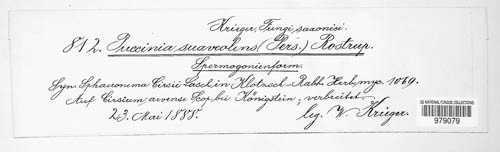 Krieger, Fungi saxonici.
812. Puccinia suaveolens (Pers.) Rostrup.
Spermogonienform.
Syn: Sphaeronema Cirsii Lasch in Klotzsch-Rabh. Herb. myc. 1069.
Auf Cirsium arvense Scop. bei Königstein, verbreitet.
23. Mai 1888. leg. W. Krieger.
US NATIONAL FUNGUS COLLECTIONS
979079